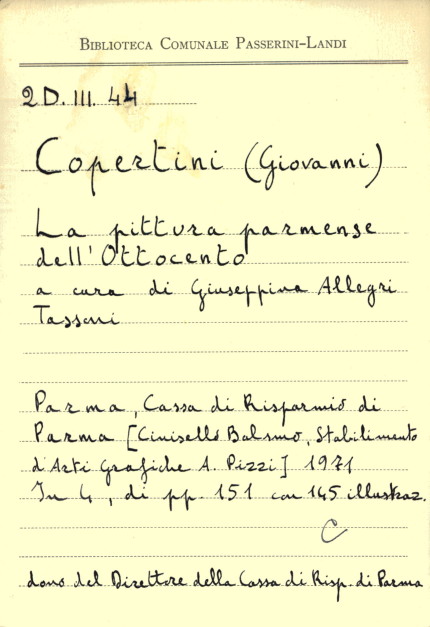 BIBLIOTECA COMUNALE PASSERINI-LANDI
2D.III.44
Copertini (Giovanni)
La pittura parmense
dell'Ottocento
a cura di Giuseppina Allegri
Tassoni
Parma, Cassa di Risparmio di
Parma [Cinisello Balsmo, Stabilimento
d'Arti Grafiche A. Pizzi] 1971
In 4, di pp. 151 con 145 illustraz.
C
dono del Direttore della Cassa di Risp. di Parma